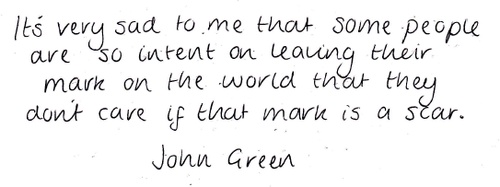 It's very sad to me that some people
are so intent on leaving their
mark on the world that they
don't care if that mark is a scar.
John Green